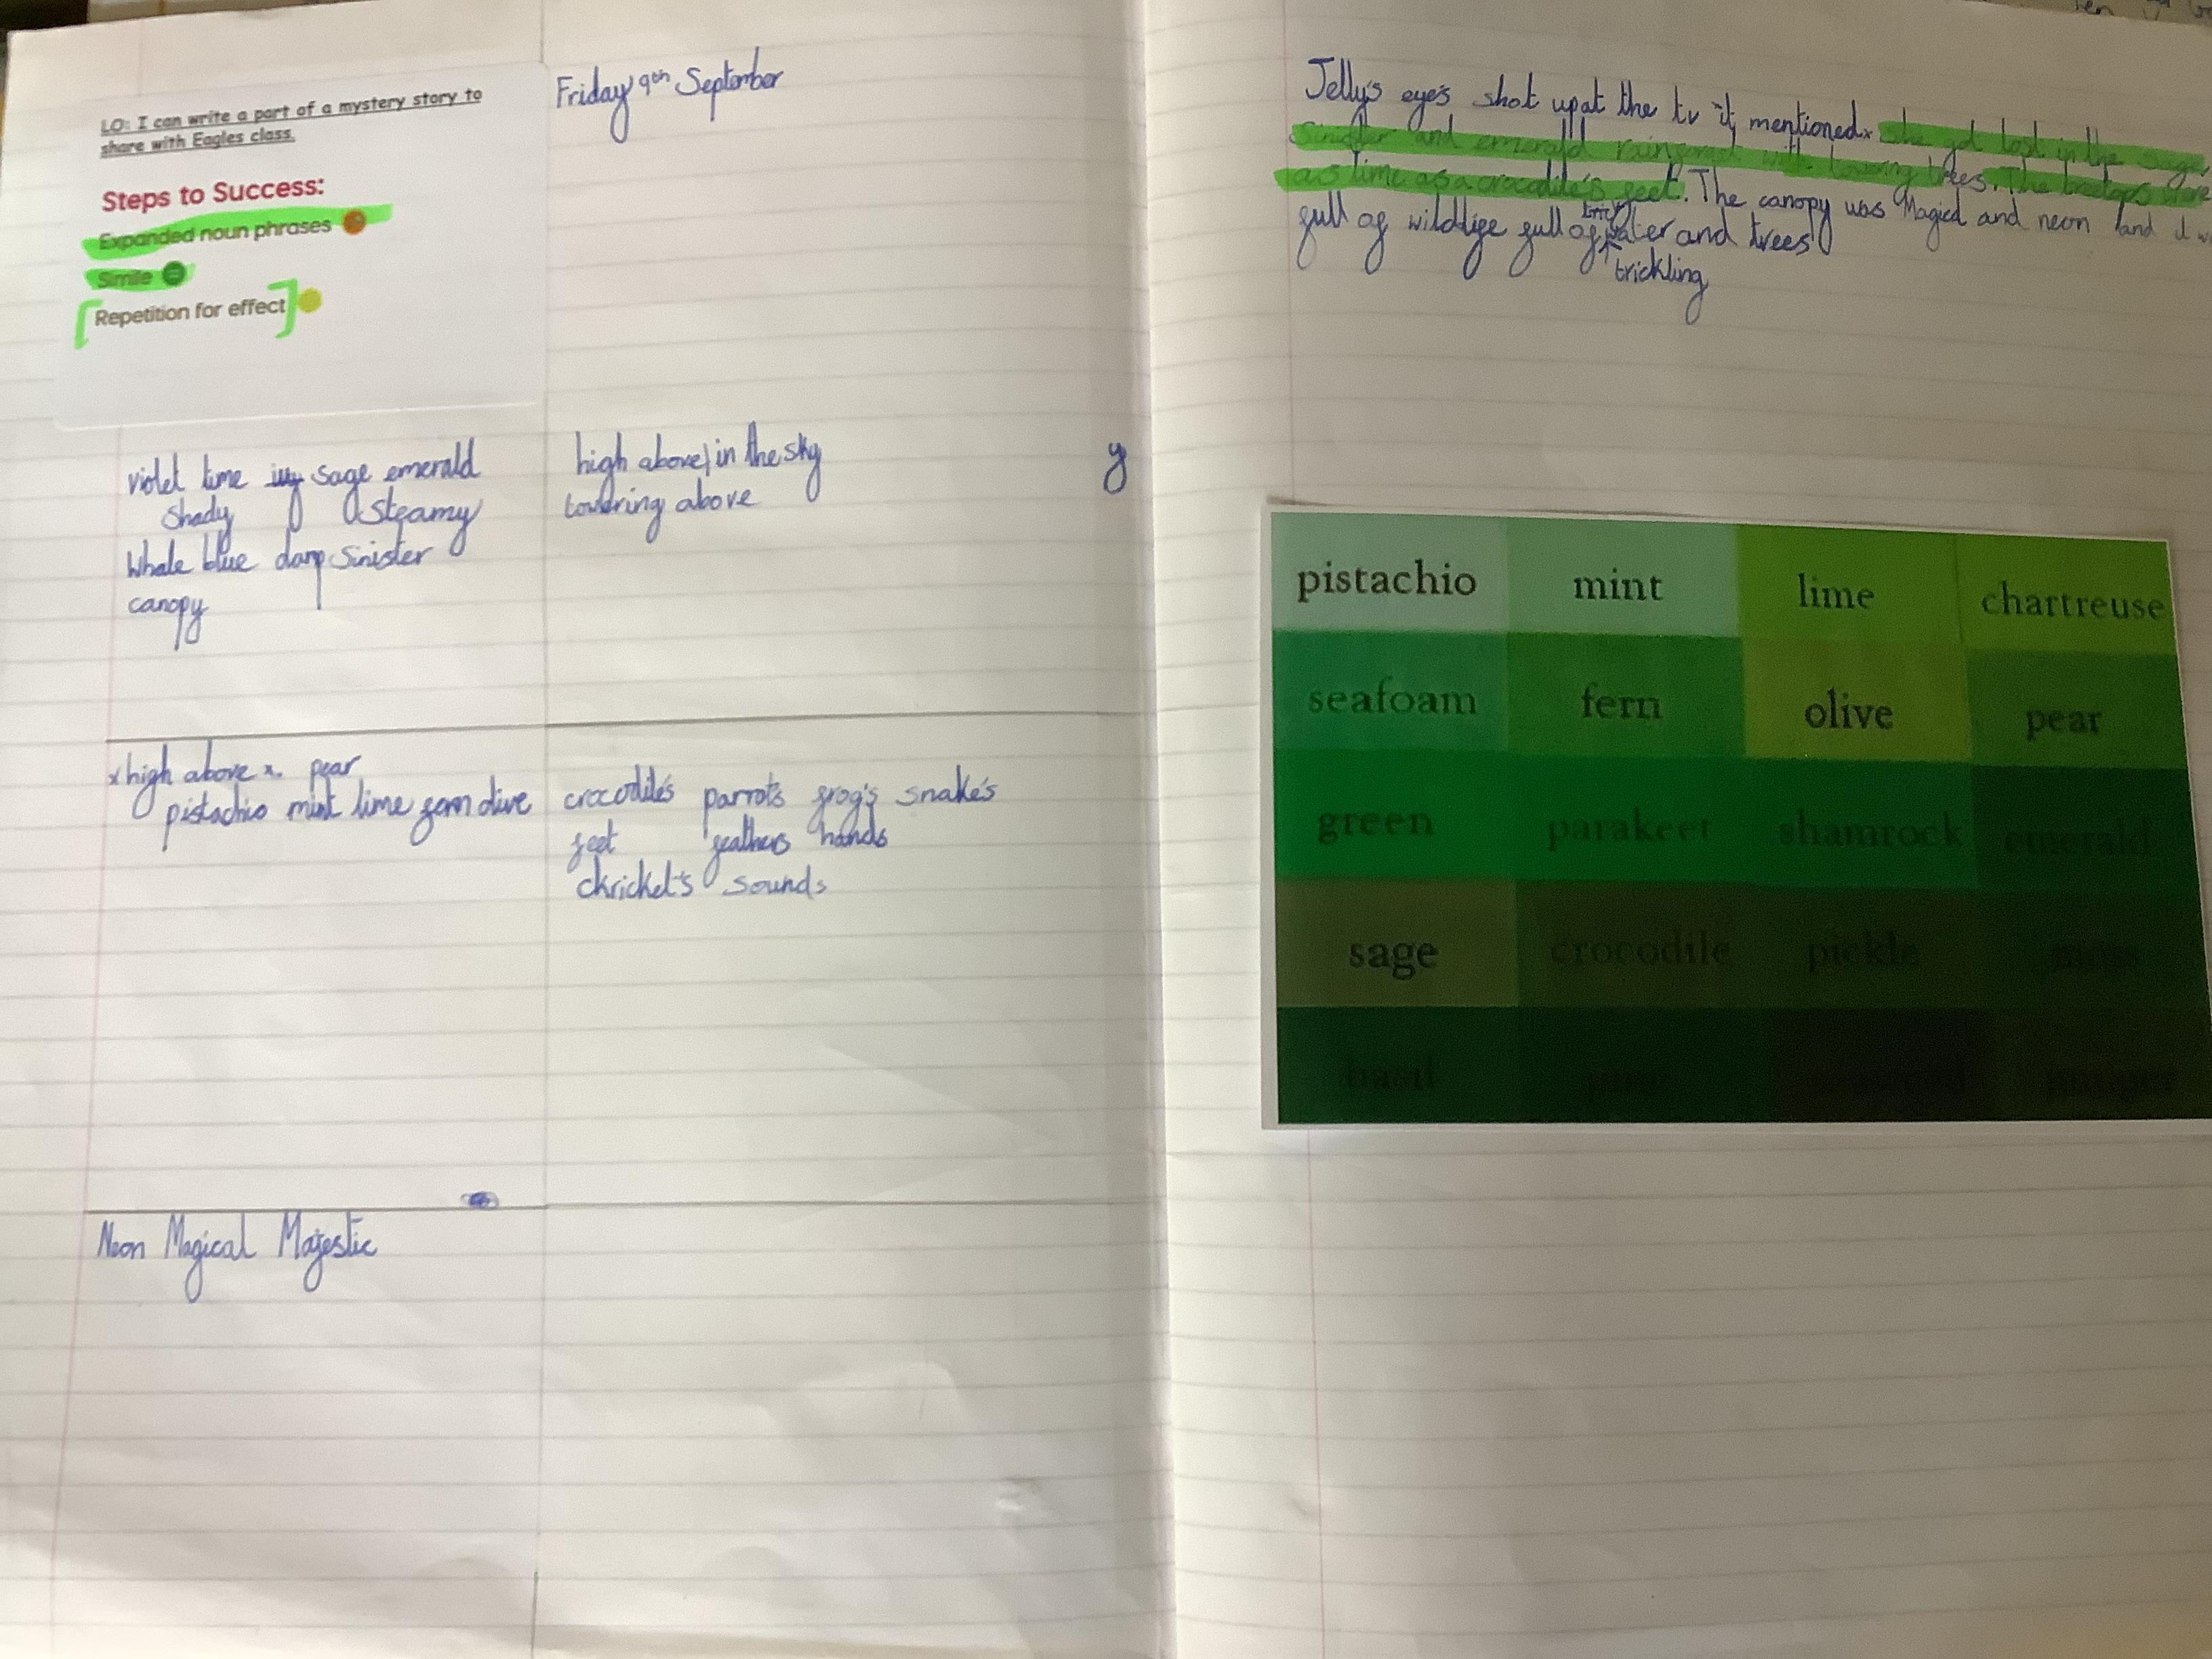 LO: I can write a part of a mystery story to
share with Eagles class.
Steps to Success:
Expanded noun phrases
Simile
Repetition for effect
Friday 9th September
violet lime sage emerald
shady steamy
Whale blue damp sinister
canopy
high above in the sky
towering above
y
x high above x. pear
pistachio mint lime fern olive
crocodile's parrots frog's snake's
feet feathers hands
ckricket's sounds
Neon Magical Majestic
Jelly's eye's shot up at the tv it mentioned x she got lost in the sage,
sinister and emerald rainforest with towering trees. The treetops were
as lime as a crocodile's feet. The canopy was Magical and neon and it
full of wildlife full of water and trees
trickling
pistachio mint lime chartreuse
seafoam fern olive pear
green parakeet shamrock emerald
sage crocodile pickle moss
basil